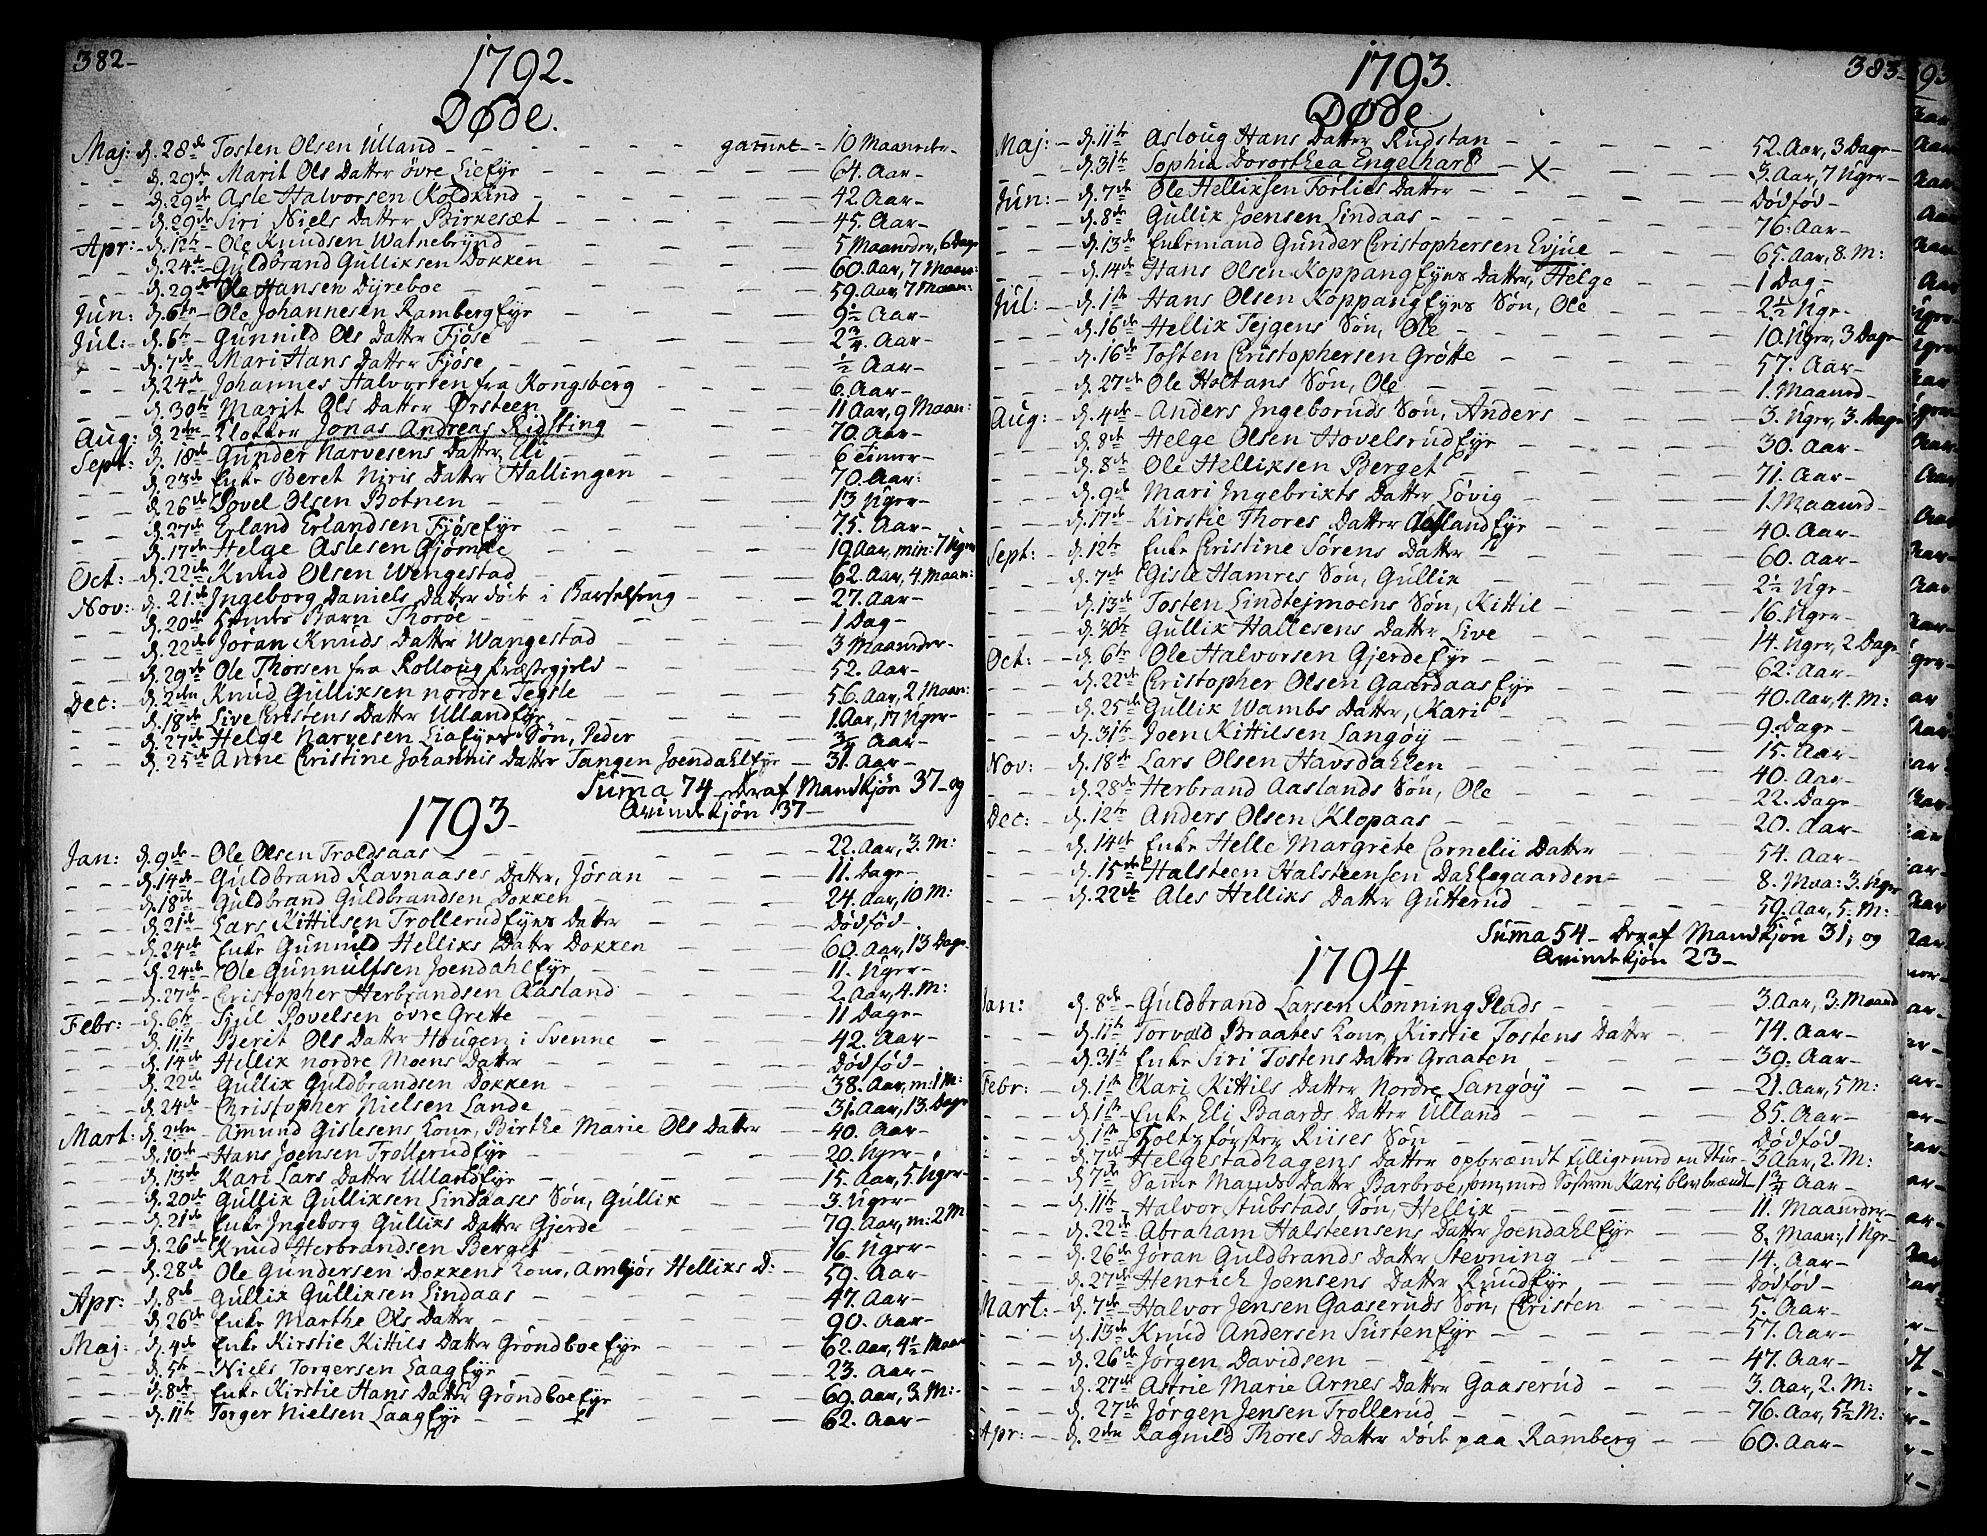 382-
1792-
Døde.
Maj: d. 28de Tosten Olsen Ulland - - - - - - gammel - = 10 Maaneder-
- - d. 29de Marit Ols Datter øvre Lie Eje - - - - - 64. Aar-
- - d. 29de Asle Halvorsen Koldkind - - - - - 42. Aar-
- - d. 29de Siri Niels Datter Birkesæt - - - - - 45. Aar-
Apr: - d. 12te - Ole Knudsen Watnebrynd - - - - - 5 Maaneder, 6 Dage
- - d. 24de - Guldbrand Gulliksen Dokken - - - - 60. Aar, 7 Maan:
- - d. 29de Ole Hansen Dyreboe - - - - - 59. Aar, 7 Maan:
Jun: - d. 6te - Ole Johannesen Ramberg Eje - - - - 9½ Aar-
Jul: - d. 6te - Gunnild Ols Datter Fjøse - - - - 2¾. Aar-
- d. 7de - Mari Hans Datter Fjøse - - - - ½ Aar-
- - d. 24de Johannes Halvorsen fra Kongsberg - - - - 6. Aar-
- - d. 30te Marit Ols Datter Ørsteen - - - - 11 Aar, 9 Maan:
Aug: d. 2den - Klokker Jonas Andreas Kidsting - - - 70. Aar-
Sept: d. 18de Gunder Narvesens Datter, Eli - - - - 6 Timer-
- - d. 23de Enke Beret Niris Datter Hallingen - - - 70. Aar:
- - d. 26de Povel Olsen Botnen - - - - - 13 Uger-
- - d. 27de Erland Erlandsen Fjøse Eje - - - - 75. Aar-
- - d. 17de Helge Aslesen Gjømle - - - - 19. Aar, min: 7 Uger
Oct: - d. 22de Knud Olsen Wengestad - - - - 62. Aar, 4. Maan:
Nov: - d. 21de Ingeborg Daniels Datter døde i Barselseng - - - 27. Aar-
- - d. 20de Barn Thorøe - - - - - 1 Dag-
- - d. 22de Jøran Knuds Datter Wangestad - - - - 3 Maaneder-
- - d. 29de Ole Thorsen fra Rolloug Præstegjeld - - - 52. Aar-
Dec: - d. 2den Knud Gulliksen nordre Tegsle - - - - 56. Aar, 2 Maan:
- - d. 18de Live Cristens Datter Ulland Eje - - - - 1. Aar, 17 Uger-
- - d. 27de Helge Narvesen Lia Ejes Søn, Peder - - - ¾ Aar-
- - d. 25de Anne Cristine Johannis Datter Tangen Joendahl Eje - 31. Aar-
Suma 74 - deraf Mandkjøn 37- og
Qvindekjøn 37-
1793-
Jan: d. 9de - Ole Olsen Troldsaas - - - - - 22. Aar, 3. M:
- - - d. 14de - Guldbrand Ravnaases Datter, Jøran - - - 11. Dage-
- - - d. 18de - Guldbrand Guldbrandsen Dokken - - - - 24. Aar, 10 M:
- - - d. 21de - Lars Kittilsen Trollerud Ejes Datter - - - Dødfød-
- - - d. 24de Enke Gunnild Helliks Datter Dokken - - - 60. Aar, 13 Dage
- - - d. 24de - Ole Gunnulfsen Joendahl Eje - - - - 11. Uger-
- - - d. 27de - Cristopher Herbrandsen Aasland - - - - 2. Aar, 4. M:
Febr: - d. 6te - Sjul Povelsen øvre Grette - - - - 11 Dage-
- - - d. 11te - Berit Ols Datter Hougen i Svenne - - - 42. Aar-
- - - d. 14de Hellik nordre Moens Datter - - - - Dødfød-
- - - d. 22de Gullik Guldbrandsen Dokken - - - - 38. Aar, m: 1 M:
- - - d. 24de - Christopher Nielsen Lande - - - - 31. Aar, 13. Dage
Mart: d. 2den - Amund Gislesens Kone, Birthe Marie Ols Datter - - 40. Aar-
- - - d. 10de - Hans Joensen Trollerud Eje - - - - 20. Uger-
- - - d. 13de Kari Lars Datter Ulland Eje - - - - 15. Aar, 5. Uger-
- - - d. 20de Gullik Gulliksen Lindaases Søn, Gullik - - - 3. Uger-
- - - d. 21de Enke Ingeborg Gulliks Datter Gjerde - - - 79. Aar, m: 2 M
- - - d. 26de Knud Herbrandsen Berget - - - - 16. Uger-
- - - d. 28de Ole Gundersen Dokkens Kone, Ambjør Helliks D: - 59. Aar-
Apr: - d. 8de Gullik Gulliksen Lindaas - - - - 47. Aar-
- - - d. 26de Enke Marthe Ols Datter - - - - 90. Aar-
Maj: d. 4de Enke Kirstie Kittils Datter Grøndboe Eje - - - 62. Aar, 4½ Maan
- - - d. 5te - Niels Torgersen Laag Eje - - - - 23. Aar-
- - - d. 8de - Enke Kirstie Hans Datter Grøndboe Eje - - - 69. Aar, 3. M: -
- - - d. 11te Torger Nielsen Laag Eje - - - - 62. Aar-
383-
1793.
Døde
Maj: - d. 11te Asloug Hans Datter Rudstan - - - - 52. Aar, 3 Dage-
- - - d. 31te Sophia Dororthea Engelhart - X - - - 3. Aar, 7 Uger-
Jun: - d. 7de Ole Helliksen Førlies Datter - - - - Dødfød-
- - - d. 8de Gullik Joensen Lindaas - - - - - 76. Aar-
- - - d. 13de Enkemand Gunder Cristophersen Evjue - - - 65. Aar, 8. M:
- - - d. 14de Hans Olsen Koppang Ejes Datter, Helge - - - 1 Dag-
Jul: - d. 1te Hans Olsen Koppang Ejes Søn, Ole - - - 2½ Uge-
- - - d. 16de Hellik Tejgens Søn, Ole - - - - 10. Uger, 3 Dage
- - - d. 16de Tosten Cristophersen Grøtte - - - - 57. Aar-
- - - d. 27de Ole Holtans Søn, Ole - - - - 1. Maaned-
Aug: - d. 4de - Anders Ingeboruds Søn, Anders - - - 3. Uger, 3. Dage
- - - d. 8de Helge Olsen Hovelsrud Eje - - - - 30. Aar-
- - - d. 8de Ole Helliksen Berget - - - - 71. Aar-
- - - d. 9de Mari Ingebrikts Datter Løvig - - - - 1. Maaned-
- - - d. 17de Kirstie Thores Datter Aasland Eje - - - 40. Aar-
Sept: - d. 12te Enke Cristine Sørens Datter - - - - 60. Aar-
- - - d. 7de Gisle Hamres Søn, Gullik - - - - 2½ Uge-
- - - d. 13de Tosten Lindtejmoens Søn, Kittil - - - - 16. Uger-
- - - d. 30te Gullik Hallesens Datter Live - - - - 14. Uger, 2 Dage
Oct: - d. 6te Ole Halvorsen Gjerde Eje - - - - 62. Aar-
- - - d. 22de Cristopher Olsen Gaardaas Eje - - - - 40. Aar, 4. M:
- - - d. 25de Gullik Wambs Datter, Kari - - - - 9. Dage-
- - - d. 31te Joen Kittilsen Langøy - - - - 15. Aar-
Nov: - d. 18de Lars Olsen Havsdahlen - - - - 40. Aar-
- - - d. 28de Herbrand Aaslands Søn, Ole - - - - 22. Dage-
Dec: - d. 12te Anders Olsen Klopaas - - - - 20. Aar-
- - - d. 14de Enke Helle Margrete Cornelii Datter - - - 54. Aar-
- - - d. 15de Halsteen Halsteensen Dahlegaarden - - - 8. Maa: 3. Uger
- - - d. 22de Ales Helliks Datter Gutterud - - - - 59. Aar, 5. M:
Suma 54 - Deraf Mandkjøn 31, og
Qvindekjøn 23-
1794-
Jan: d. 8de - Guldbrand Larsen Konning Plads - - - 3. Aar, 3. Maaned
- - - d. 11te Torvald Braates Kone, Kirstie Tostens Datter - - 74. Aar-
- - - d. 31te Enke Siri Tostens Datter Graaten - - - 39. Aar-
Febr: - d. 1te Kari Kittils Datter Nordre Langøy - - - 21. Aar, 5 M:
- - - d. 1te Enke Eli Baards Datter Ulland - - - - 85. Aar-
- - - d. 1te Holtzførster Riises Søn - - - - Dødfød-
- - - d. 7de Helgestadhagens Datter opbrændt tilligemed en Stue- 3 Aar, 2. M:
- - - d. 7de Same Mands Datter Barbroe, som med Søsteren Kari blev brændt - 1½ Aar-
- - - d. 11te - Halvor Stubstads Søn, Hellik - - - - 11. Maaneder-
- - - d. 22de Abraham Halsteensens Datter Joendahl Eje - - 8. Maan:, 1 Uge-
- - - d. 26de Jøran Guldbrands Datter Stevning - - - 14. Aar-
- - - d. 27de Henrich Joensens Datter Knud Eje - - - Dødfød-
Mart: - d. 7de - Halvor Jensen Gaaseruds Søn, Cristen - - - 5. Aar-
- - - d. 13de - Knud Andersen Surten Eje - - - - 57. Aar-
- - - d. 26de Jørgen Davidsen - - - - 47. Aar-
- - - d. 27de Astrie Marie Arnes Datter Gaaserud - - - 3. Aar, 2. M:
- - - d. 27de Jørgen Jensen Trollerud - - - - 76. Aar, 5½ M:
Apr: - d. 2den Ragnild Thores Datter døde paa Ramberg - - 60. Aar-